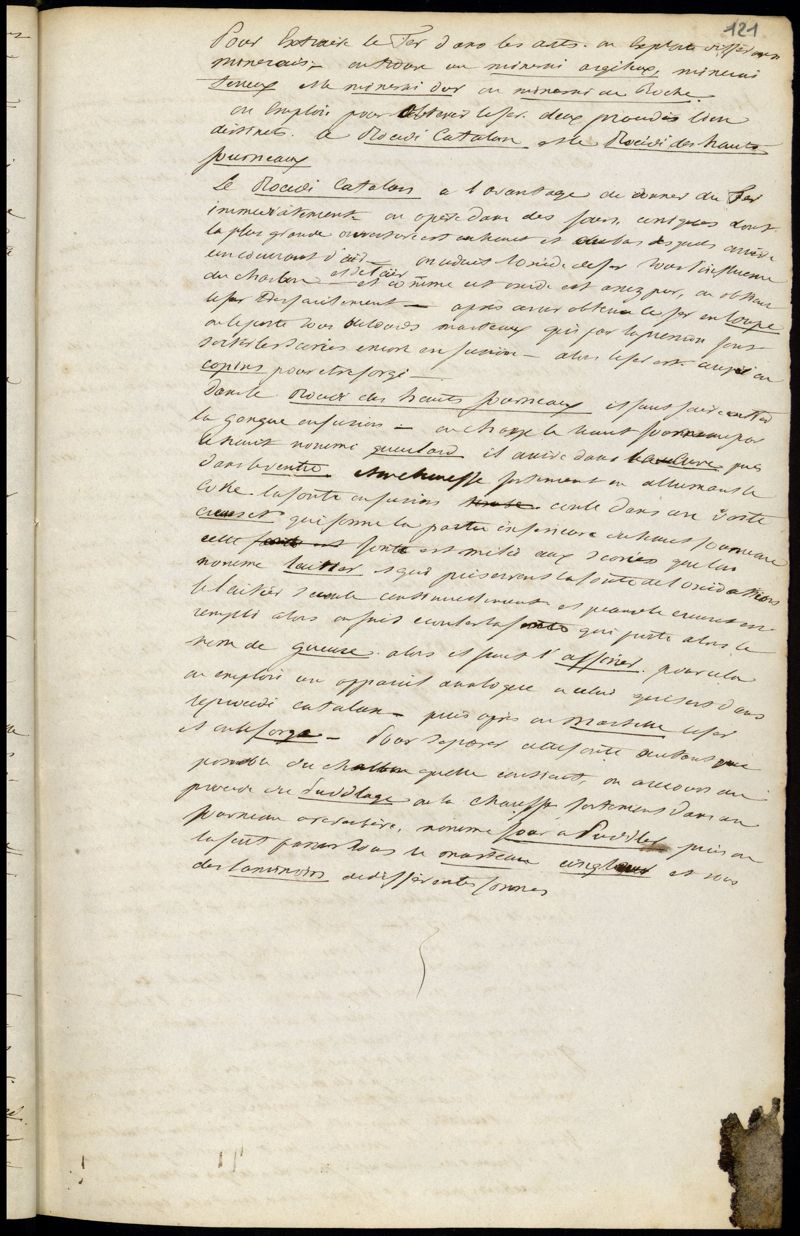 121
Pour Extraire le Fer dans les arts. on Exploite différens
minerais — on trouve un minerai argileux, minerai
terreux et le minerai dur ou minerai de Roche.
on Emploie pour obtenir le fer. deux procedés bien
distincts. le Procédé Catalan et le Procédé des hauts
fourneaux
Le Procédé Catalan a l'avantage de donner du Fer
immédiatement — on opère dans des fours coniques dont
la plus grande ouverture est en haut et au bas desquels arrive
un courant d'air — on réduit l'oxide de fer sous l'influence
du charbon et de l'air et comme cet oxide est assez pur, on obtient
le fer parfaitement — après avoir obtenu le fer en loupe
on le porte sous de lourds marteaux qui par la pression font
sortir les scories encore en fusion — alors le fer est
pour etre forgé
Dans le Procédé des hauts fourneaux il faut faire entrer
la gangue en fusion — on charge le haut fourneau par
le haut nommé gueulard il arrive dans la cuve puis
dans le ventre on chauffe fortement en allumant le
Coke. la fonte en fusion coule dans une sorte
creuset qui forme la partie inférieure du haut fourneau
cette fonte est mêlée aux scories que l'on
nomme laitier et qui préservent la fonte de l'oxidation
le laitier s'ecoule continuellement et quand le creuset est
rempli alors on fait ecouler la fonte qui porte alors le
nom de gueuse. alors il faut l'affiner. pour cela
on emploie un appareil analogue a celui qui sert dans
le procédé catalan — puis après on martelle le fer
et on le forge — Pour séparer cette fonte autant que
possible du charbon quelle contient, on a recours au
procédé du Pudelage on la chauffe fortement dans un
fourneau a reverbère, nommé four a Pudler puis on
la fait passer sous le marteau cingleur et sous
des laminoirs de différentes formes